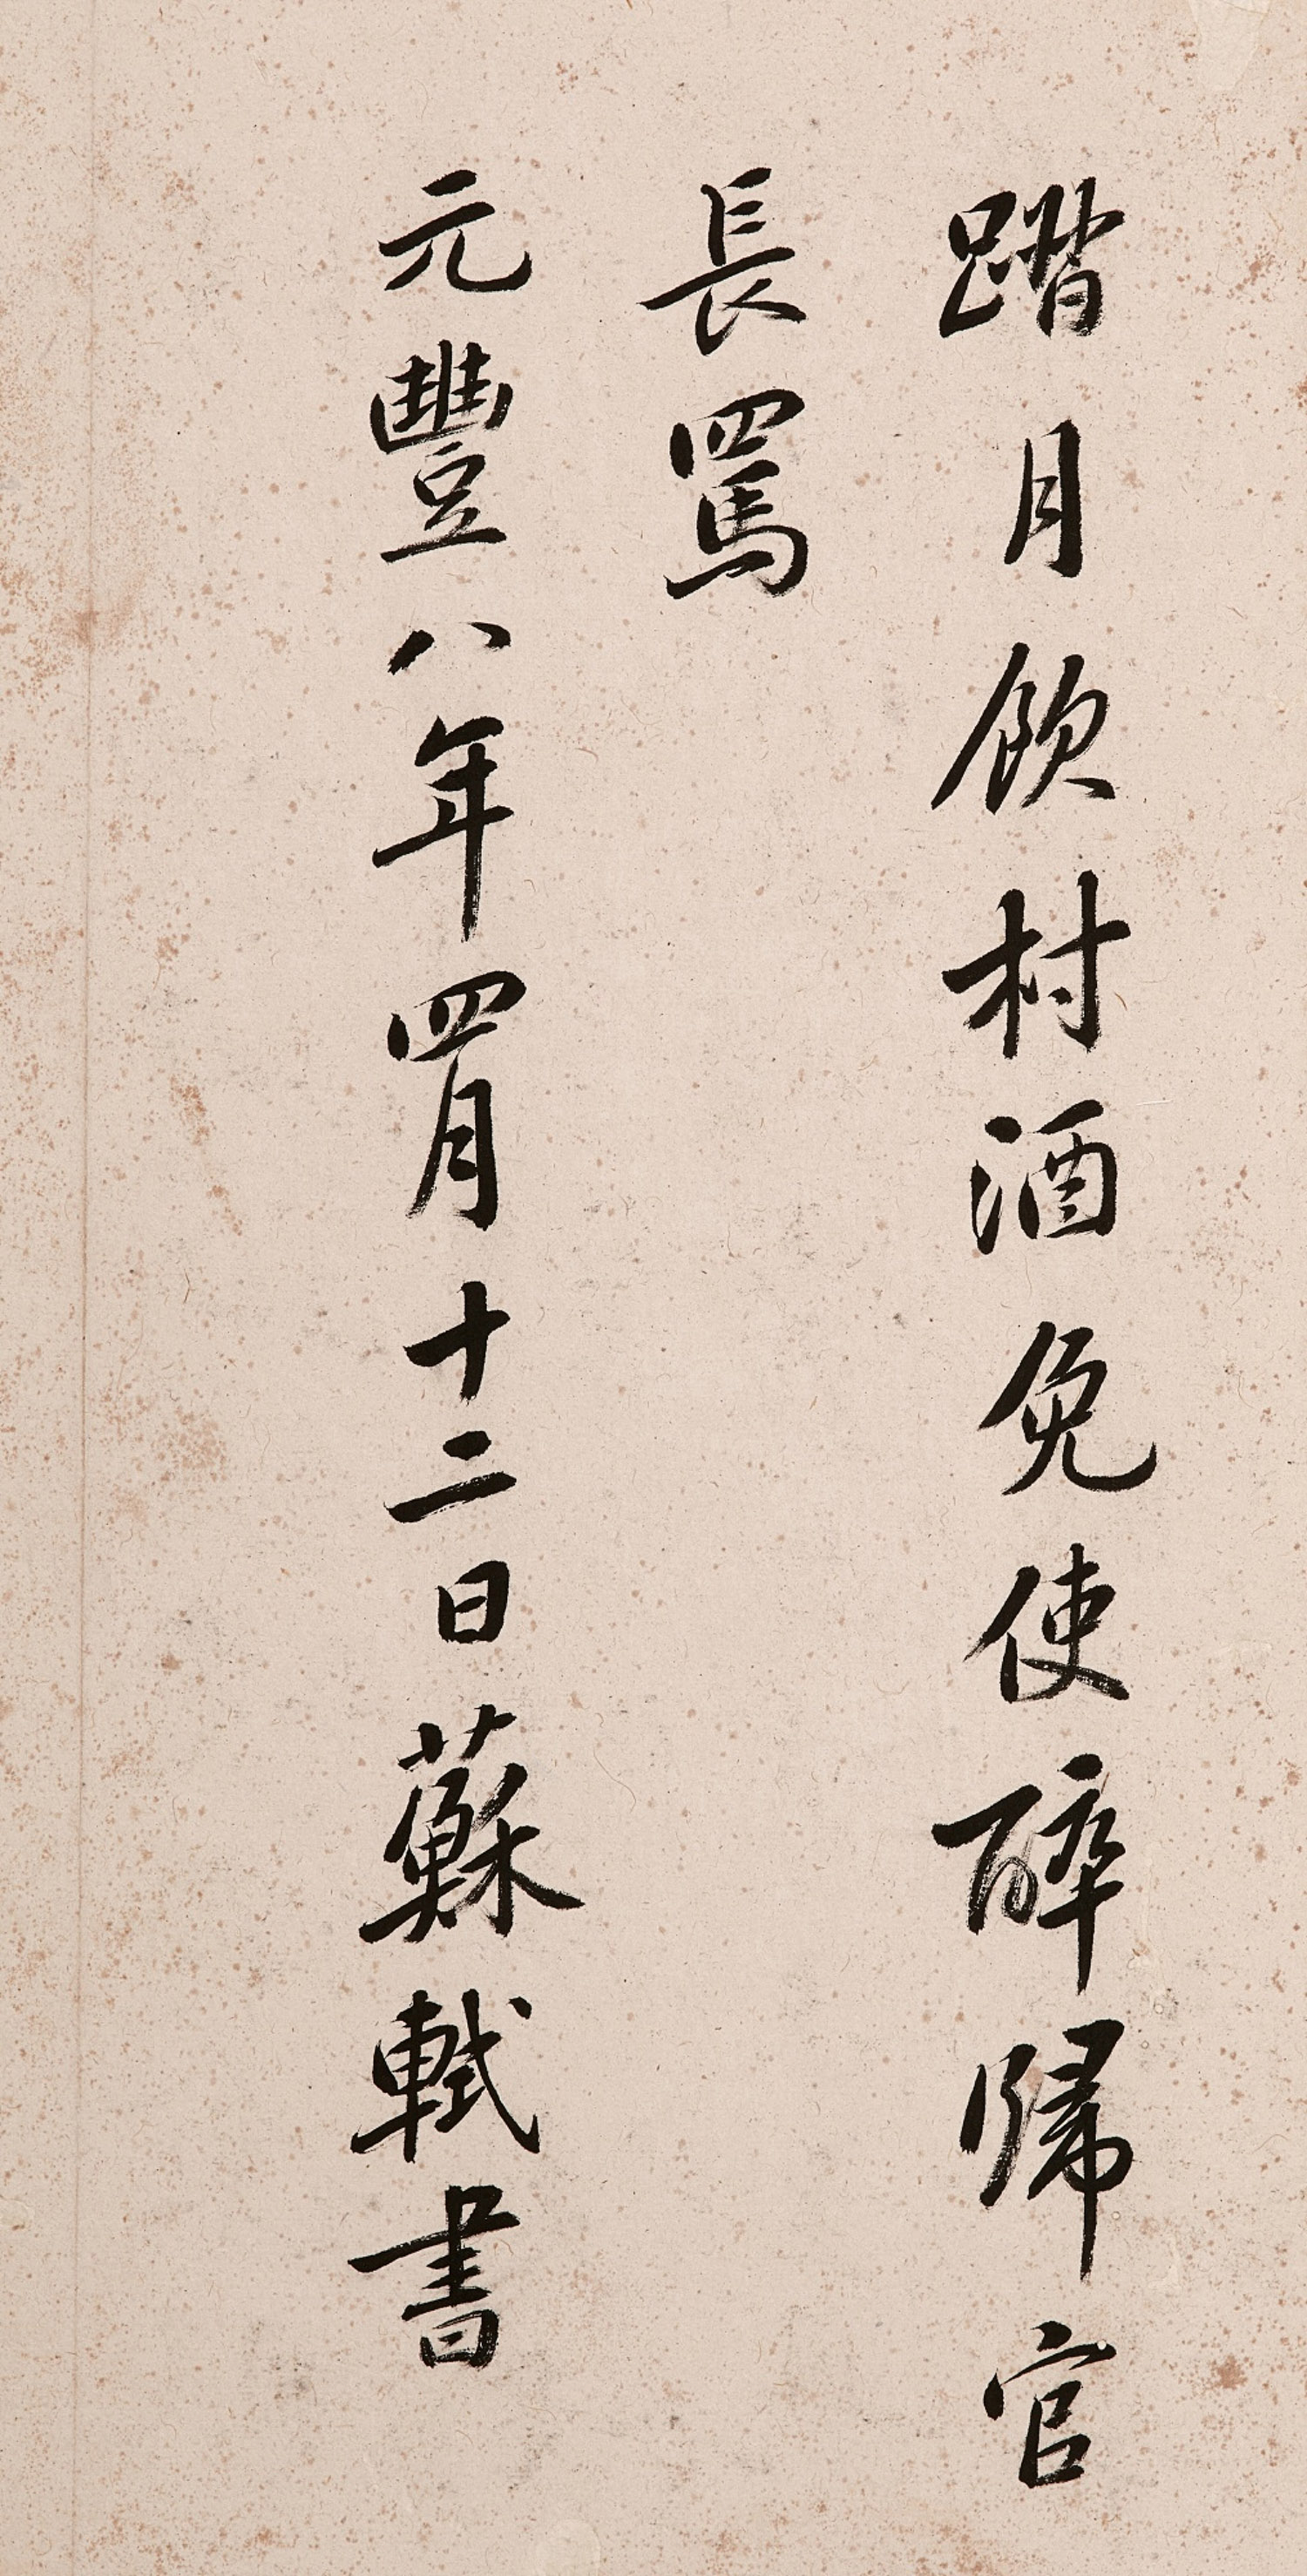 踏月飲村酒免使醉歸官
長罵
元豐八年四月十二日蘇軾書